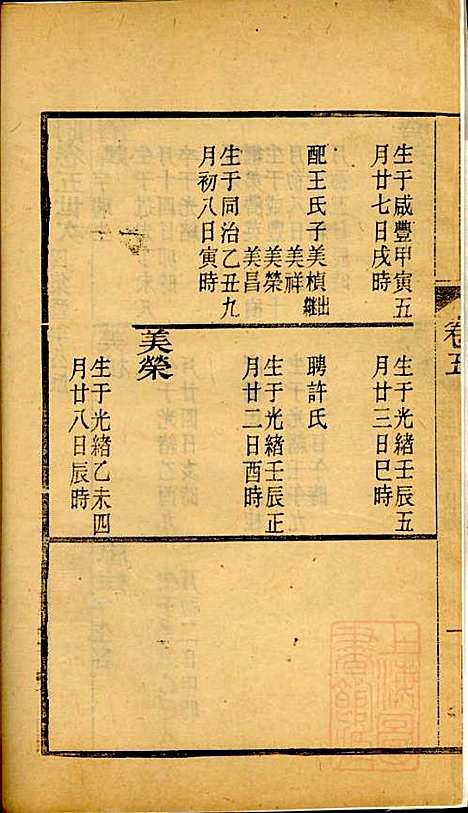 卷五
生于咸豐甲寅五
月廿七日戌時
配王氏子美楨出繼
美祥
美榮
美昌
生于同治乙丑九
月初八日寅時
生于光緒壬辰五
月廿三日巳時
聘許氏
生于光緒壬辰正
月廿二日酉時
美榮
生于光緒乙未四
月廿八日辰時
一